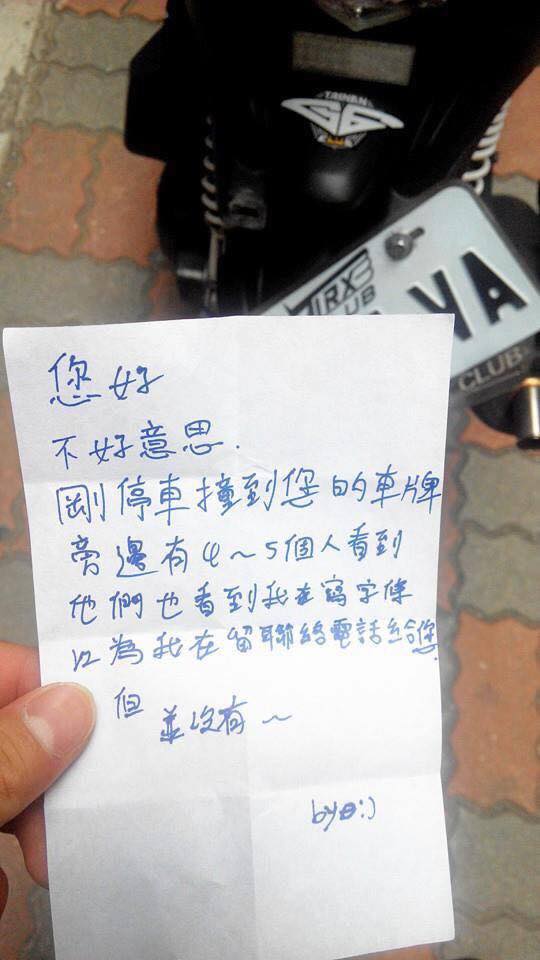 TAINAN
G6
IRX
UB
VA
CLUB
您好
不好意思.
剛停車撞到您的車牌
旁邊有4～5個人看到
他們也看到我在寫字條
以為我在留聯絡電話給您.
但
並沒有～
by :)